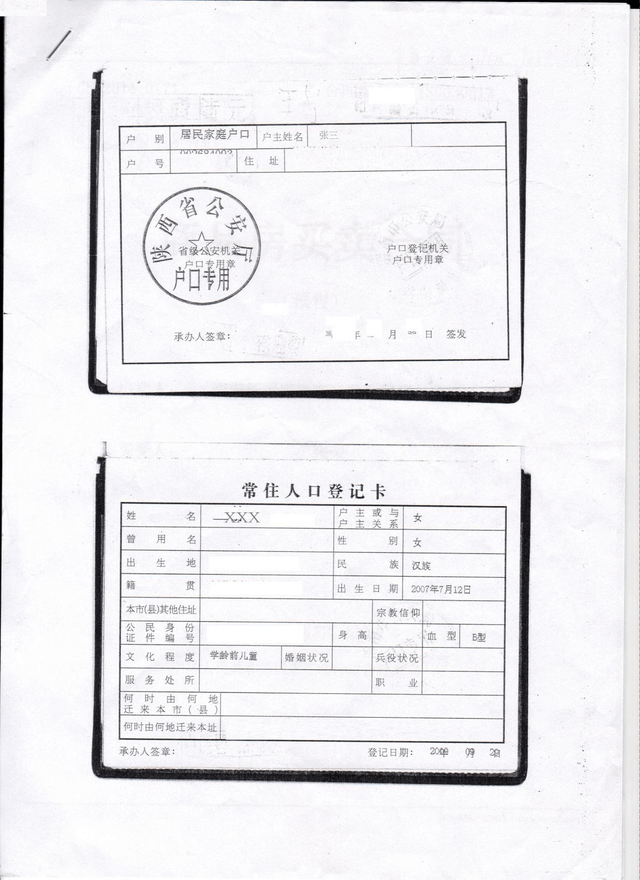 户 别 居民家庭户口 户主姓名 张三
户 号 住 址
陕西省公安厅
省级公安机关
户口专用章
户口专用
户口登记机关
户口专用章
承办人签章： 年 月 日 签发
常住人口登记卡
姓 名 XXX 户主或与户主关系 女
曾用名 性 别 女
出生地 民 族 汉族
籍 贯 出生日期 2007年7月12日
本市(县)其他住址 宗教信仰
公民身份证件编号 身高 血型 B型
文化程度 学龄前儿童 婚姻状况 兵役状况
服务处所 职 业
何时由何地迁来本市(县)
何时由何地迁来本址
承办人签章： 登记日期： 年 月 日